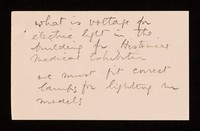 what is voltage for
electric light in the
building for Historical
Medical Exhibition
we must get correct
lamps for lighting in
models